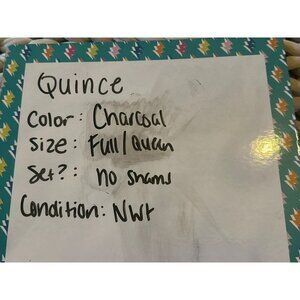 Quince
Color: Charcoal
Size: Full/Queen
Set?: no shams
Condition: NWT